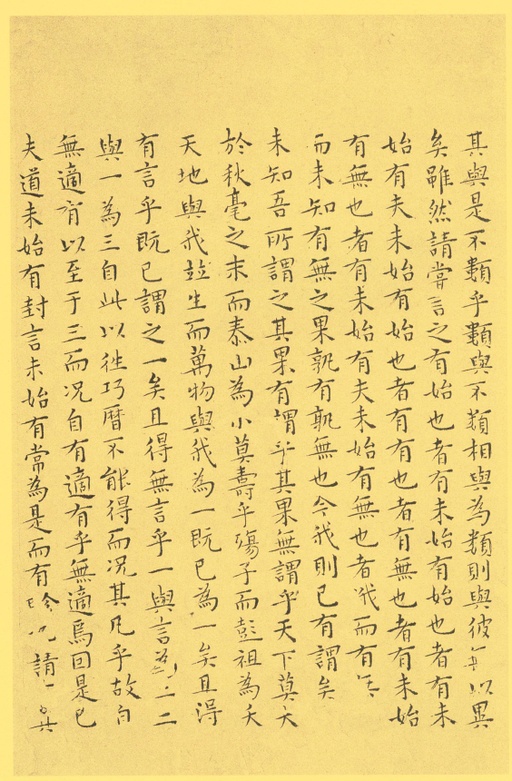 其與是不類乎類與不類相與為類則與彼無以異
矣雖然請嘗言之有始也者有未始有始也者有未
始有夫未始有始也者有有也者有無也者有未始
有無也者有未始有夫未始有無也者俄而有無
而未知有無之果孰有孰無也今我則已有謂矣
未知吾所謂之其果有謂乎其果無謂乎天下莫大
於秋毫之末而泰山為小莫壽乎殤子而彭祖為夭
天地與我並生而萬物與我為一既已為一矣且得
有言乎既已謂之一矣且得無言乎一與言為二二
與一為三自此以往巧曆不能得而况其凡乎故自
無適有以至于三而况自有適有乎無適焉因是已
夫道未始有封言未始有常為是而有畛也請言其